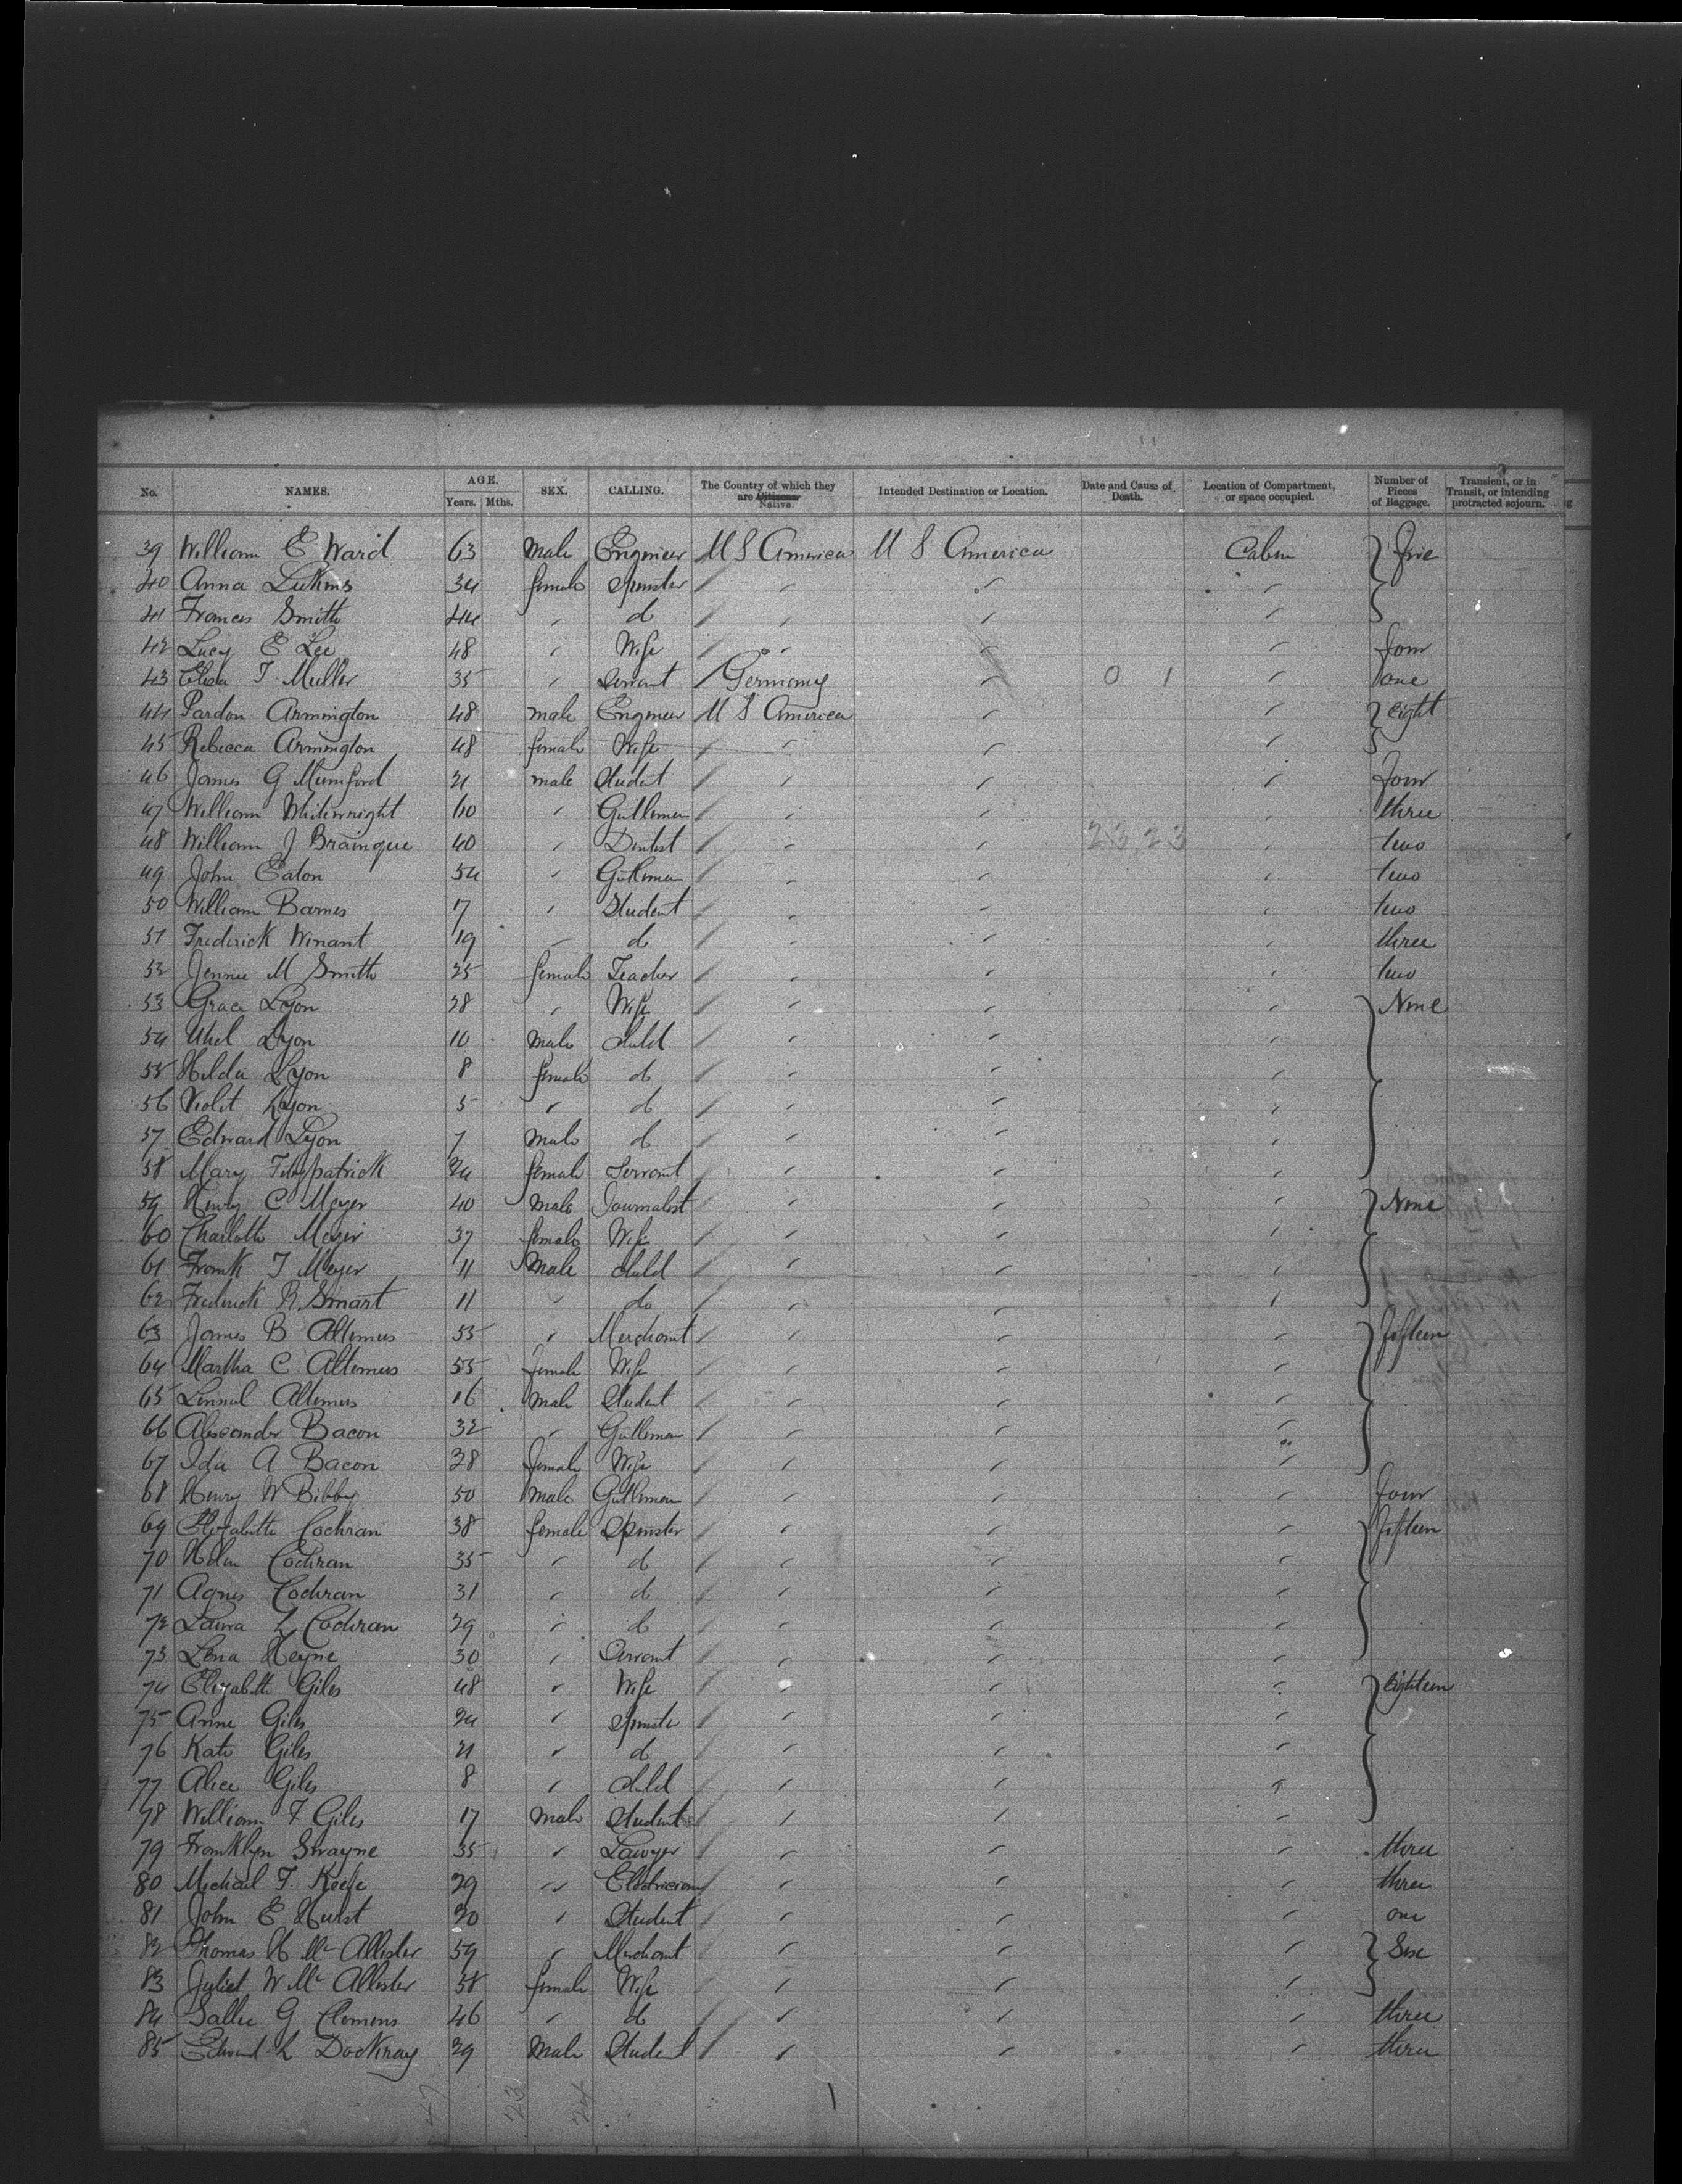 No. NAMES. AGE. Years. Mths. SEX. CALLING. The Country of which they are Citizens Native. Intended Destination or Location. Date and Cause of Death. Location of Compartment, or space occupied. Number of Pieces of Baggage. Transient, or in Transit, or intending protracted sojourn.
39 William E Ward 63 Male Engineer U S America U S America Cabin five
40 Anna 34 female Spinster " " "
41 Frances Smith 44 " do " " "
42 Lucy E Lee 48 " Wife " " " four
43 Eliza T Muller 35 " Servant Germany " 0 1 " one
44 Pardon Armington 48 male Engineer U S America " " eight
45 Rebecca Armington 48 female Wife " " "
46 James G Mumford 21 male Student " " " four
47 William Whitewright 60 " Gentleman " " " three
48 William J 40 " Dentist " " 23,23 " two
49 John Eaton 54 " Gentleman " " " two
50 William Barnes 17 " Student " " " two
51 Frederick Winant 19 " do " " " three
52 Jennie M Smith 25 female Teacher " " " two
53 Grace Lyon 28 " Wife " " " None
54 Lyon 10 Male child " " "
55 Hilda Lyon 8 female do " " "
56 Violet Lyon 5 " do " " "
57 Edward Lyon 7 Male do " " "
58 Mary Fitzpatrick 24 female Servant " " "
59 Henry C Meyer 40 Male Journalist " " " None
60 Charlotte Meyer 37 female Wife " " "
61 Frank T Meyer 11 Male child " " "
62 Frederick R. Smart 11 " do " " "
63 James B Altemus 55 " Merchant " " " fifteen
64 Martha C Altemus 55 female Wife " " "
65 Lemuel Altemus 16 Male Student " " "
66 Alexander Bacon 32 " Gentleman " " "
67 Ida A Bacon 28 female Wife " " "
68 Henry W Bibby 50 Male Gentleman " " " four
69 Elizabeth Cochran 38 female Spinster " " " fifteen
70 Helen Cochran 35 " do " " "
71 Agnes Cochran 31 " do " " "
72 Laura L Cochran 29 " do " " "
73 Lena Heyne 30 " Servant " " "
74 Elizabeth Giles 48 " Wife " " " Eighteen
75 Anne Giles 24 " Spinster " " "
76 Kate Giles 21 " do " " "
77 Alice Giles 8 " child " " "
78 William F Giles 17 Male Student " " "
79 Franklyn Swayne 35 " Lawyer " " " three
80 Michael F. Keefe 29 " Electrician " " " three
81 John E Hurst 20 " Student " " " one
82 Thomas H Mc Allister 59 " Merchant " " " Six
83 Juliet W Mc Allister 58 female Wife " " "
84 Sallie G Clemens 46 " do " " " three
85 Edward L Dockray 29 Male Student " " " three
47 23 24